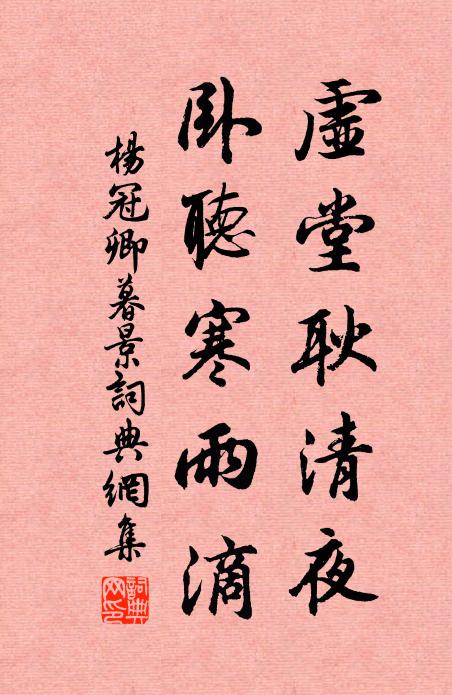 虛堂耿清夜
卧聽寒雨滴
楊冠卿暮景詞典網集
詞典網印